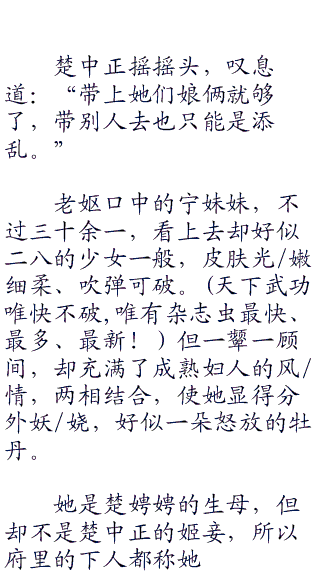 楚中正摇摇头，叹息
道：“带上她们娘俩就够
了，带别人去也只能是添
乱。”
老妪口中的宁妹妹，不
过三十余一，看上去却好似
二八的少女一般，皮肤光/嫩
细柔、吹弹可破。(天下武功
唯快不破,唯有杂志虫最快、
最多、最新！）但一颦一顾
间，却充满了成熟妇人的风/
情，两相结合，使她显得分
外妖/娆，好似一朵怒放的牡
丹。
她是楚娉娉的生母，但
却不是楚中正的姬妾，所以
府里的下人都称她